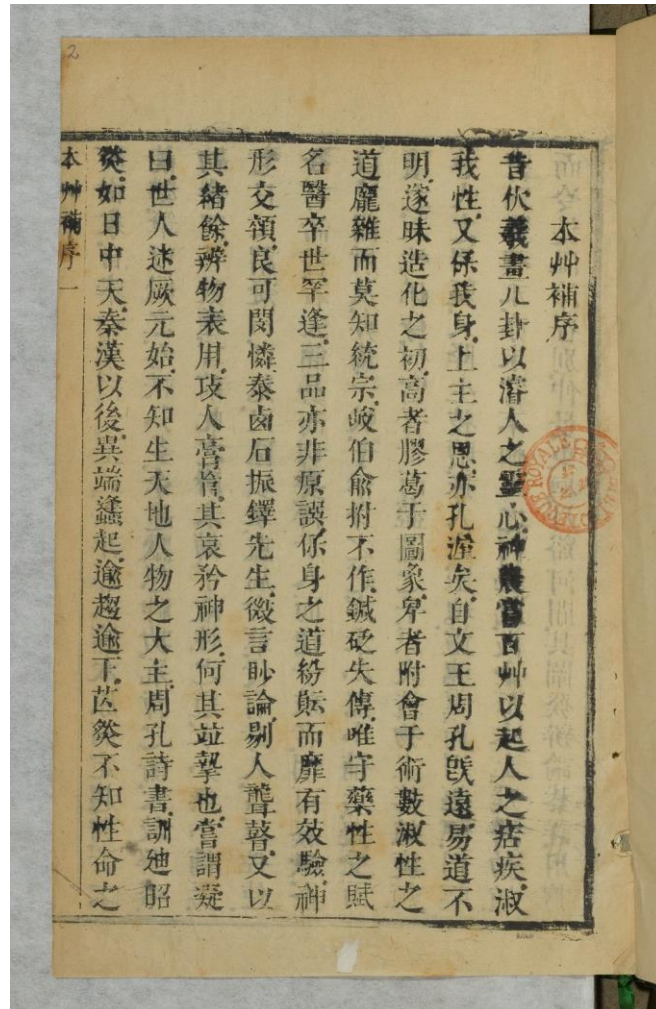 本艸補序
昔伏羲畫八卦以濬人之靈心.神農嘗百艸以起人之痞疾.淑
我性.又保我身.上主之恩.亦孔渥矣.自文王周孔旣遠.易道不
明.遂昧造化之初.高者膠葛于圖象.卑者附會于術數.淑性之
道龐雜而莫知統宗.岐伯俞拊不作.鍼砭失傳.唯守藥性之賦
名醫卒世罕逢.三品亦非原誤.保身之道紛紜而靡有效驗.神
形交顇.良可閔憐.泰卤石振鐸先生.微言眇論.剔人聾瞽.又以
其緒餘.辨物表用.攻人膏肓.其哀矜神形.何其竝摯也.嘗謂凝
曰.世人迷厥元始.不知生天地人物之大主.周孔詩書.訓迪昭
䒥.如日中天.秦漢以後.異端蠭起.逾趨逾下.茫䒥不知性命之
本艸補序 一
2